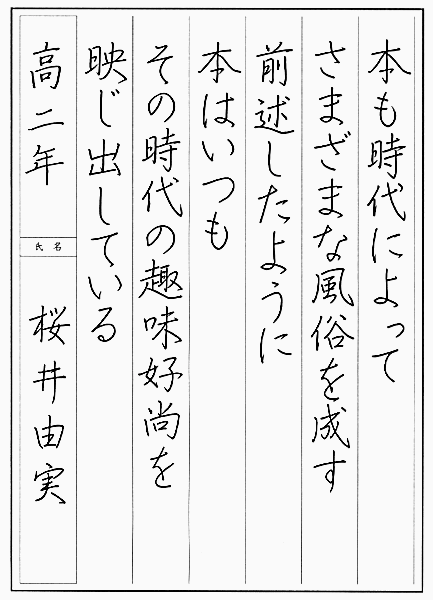 本も時代によって
さまざまな風俗を成す
前述したように
本はいつも
その時代の趣味好尚を
映じ出している
高二年
氏名
桜井由実